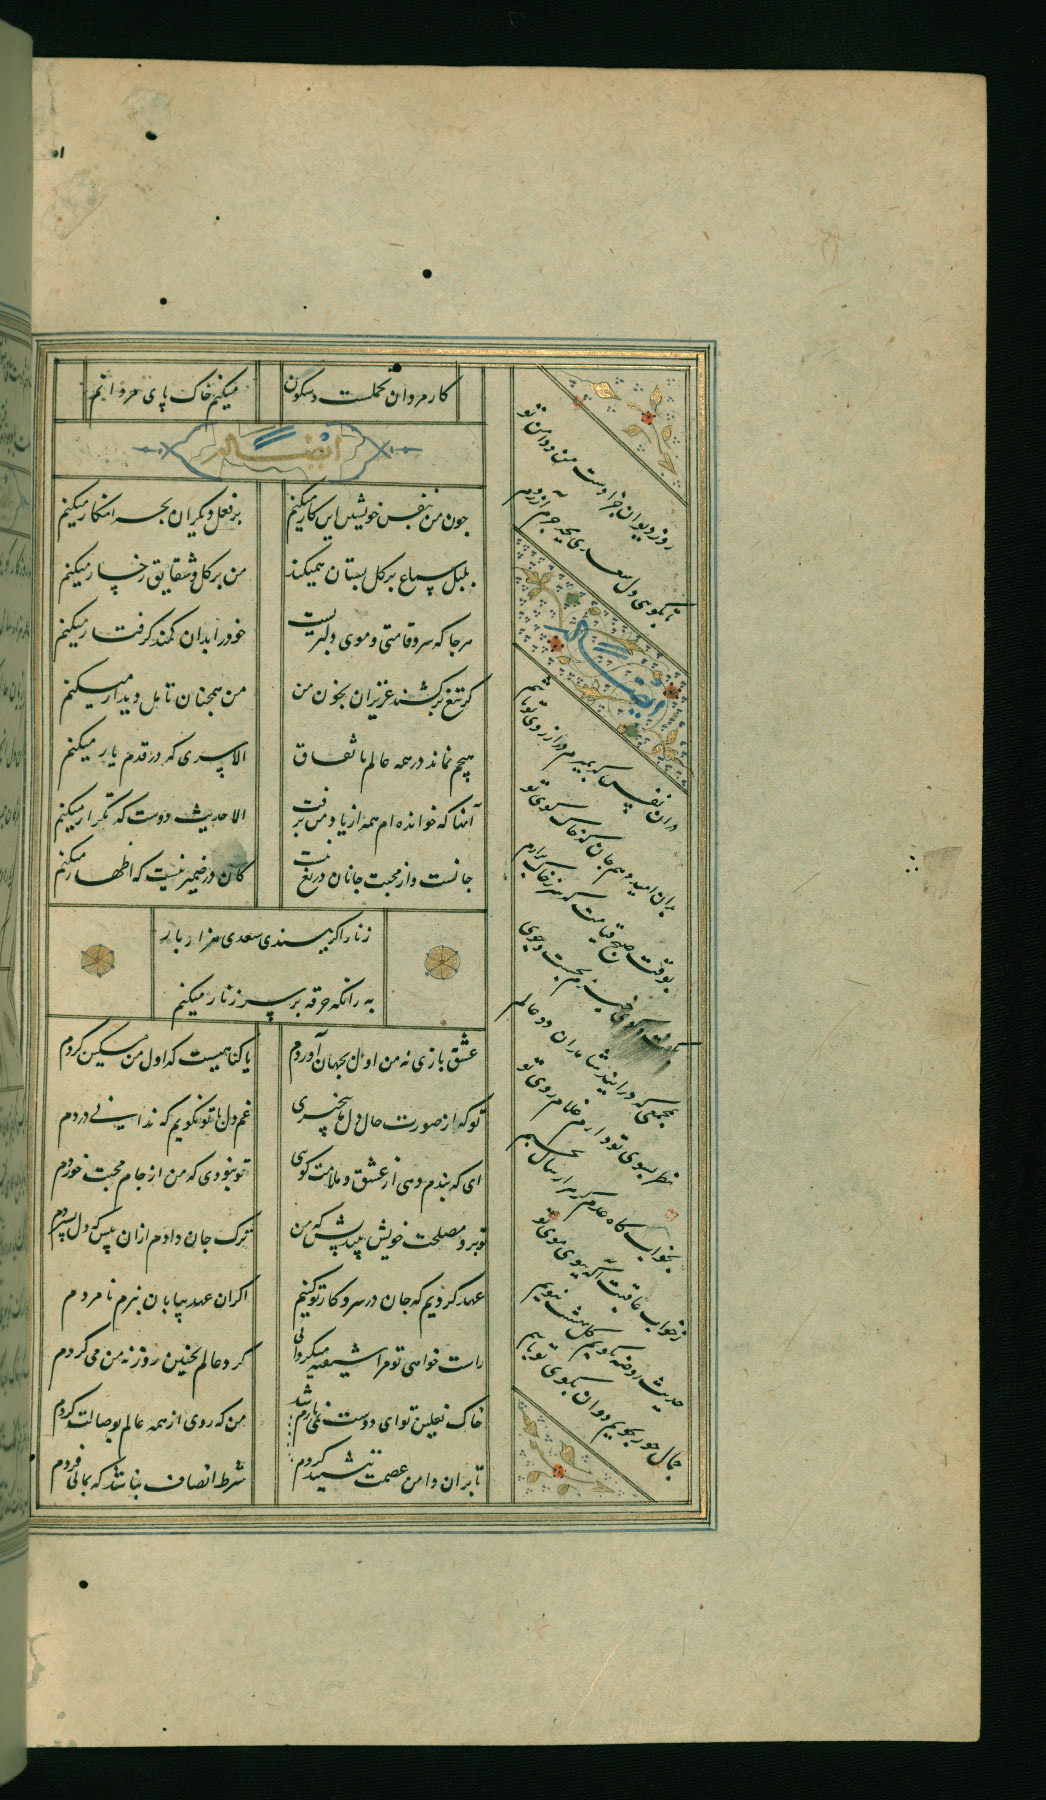 کار مردان تحملست و سکون
میکنم خاک پای مردانم
ایضاً له
چون من بنفس خویشتن این کار میکنم
بر فعل دیگران بچه انکار میکنم
بلبل سماع بر کل بستان همیکند
من بر کل و شقایق رخسار میکنم
هر جا که سرو قامتی و موی دلبریست
خود را بدان کمند گرفتار میکنم
کر تیغ برکشند عزیزان بخون من
من همچنان تامل دیدار میکنم
هیچم نماند در همه عالم باتفاق
الا سری که در قدم یار میکنم
آنها که خوانده ام همه از یاد من برفت
الا حدیث دوست که تکرار میکنم
جانست و از محبت جانان دریغ نیست
کان در ضمیر نیست که اظهار میکنم
زنار اکر ببندی سعدی هزار بار
به زانکه خرقه بر سر زنار میکنم
عشق بازی نه من اول بجهان آوردم
یا کناهیست که اول من مسکین کردم
تو که از صورت حال دل ما بیخبری
غم دل با تو نگویم که ندانی دردم
ای که پندم دهی از عشق و ملامت کوی
تو نبودی که من از جام محبت خوردم
تو برو مصلحت خویش بیندیش که من
ترک جان دادم ازان پیش که دل بسپردم
عهد کردیم که جان در سر و کار تو کنیم
اکر ان عهد بپایان نبرم نامردم
راست خواهی تو مرا شیفته میکردانی
کرد عالم بچنین روز نه من می کردم
خاک نعلین تو ای دوست نمی یارم شد
من که روی از همه عالم بوصالت کردم
تا بران دامن عصمت ننشیند کردم
شرط انصاف نباشد که بمانی فردم
روز دیوان جزا دست من و دامن تو
تا بکوی دل سعدی بچه جرم آزردم
ایضاً له
دران نفس که بمیرم در ارزوی تو باشم
بدان امید دهم جان که خاک کوی تو
بوقت صبح قیامت که سر ز خاک برارم
بکفت و کوی تو خیزم بجست و جوی
بمجمعی که درایند شاهدان دو عالم
نظر بسوی تو دارم غلام روی تو
بخوابگاه عدم کر هزار سال بخسبم
ز خواب عاقبت آگه ببوی موی تو
حدیث روضه نکویم کل بهشت نبویم
جمال حور نجویم دوان بکوی تو باشم